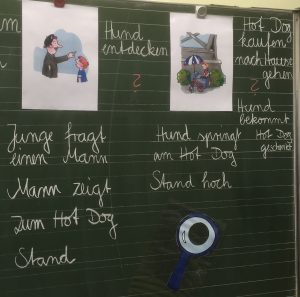 n
Hund
entdecken
?
Hot Dog
kaufen
nach Hause
gehen
?
Hund
bekommt
Hot Dog
geschenkt
Junge fragt
einen Mann
Mann zeigt
zum Hot Dog
Stand
Hund springt
am Hot Dog
Stand hoch